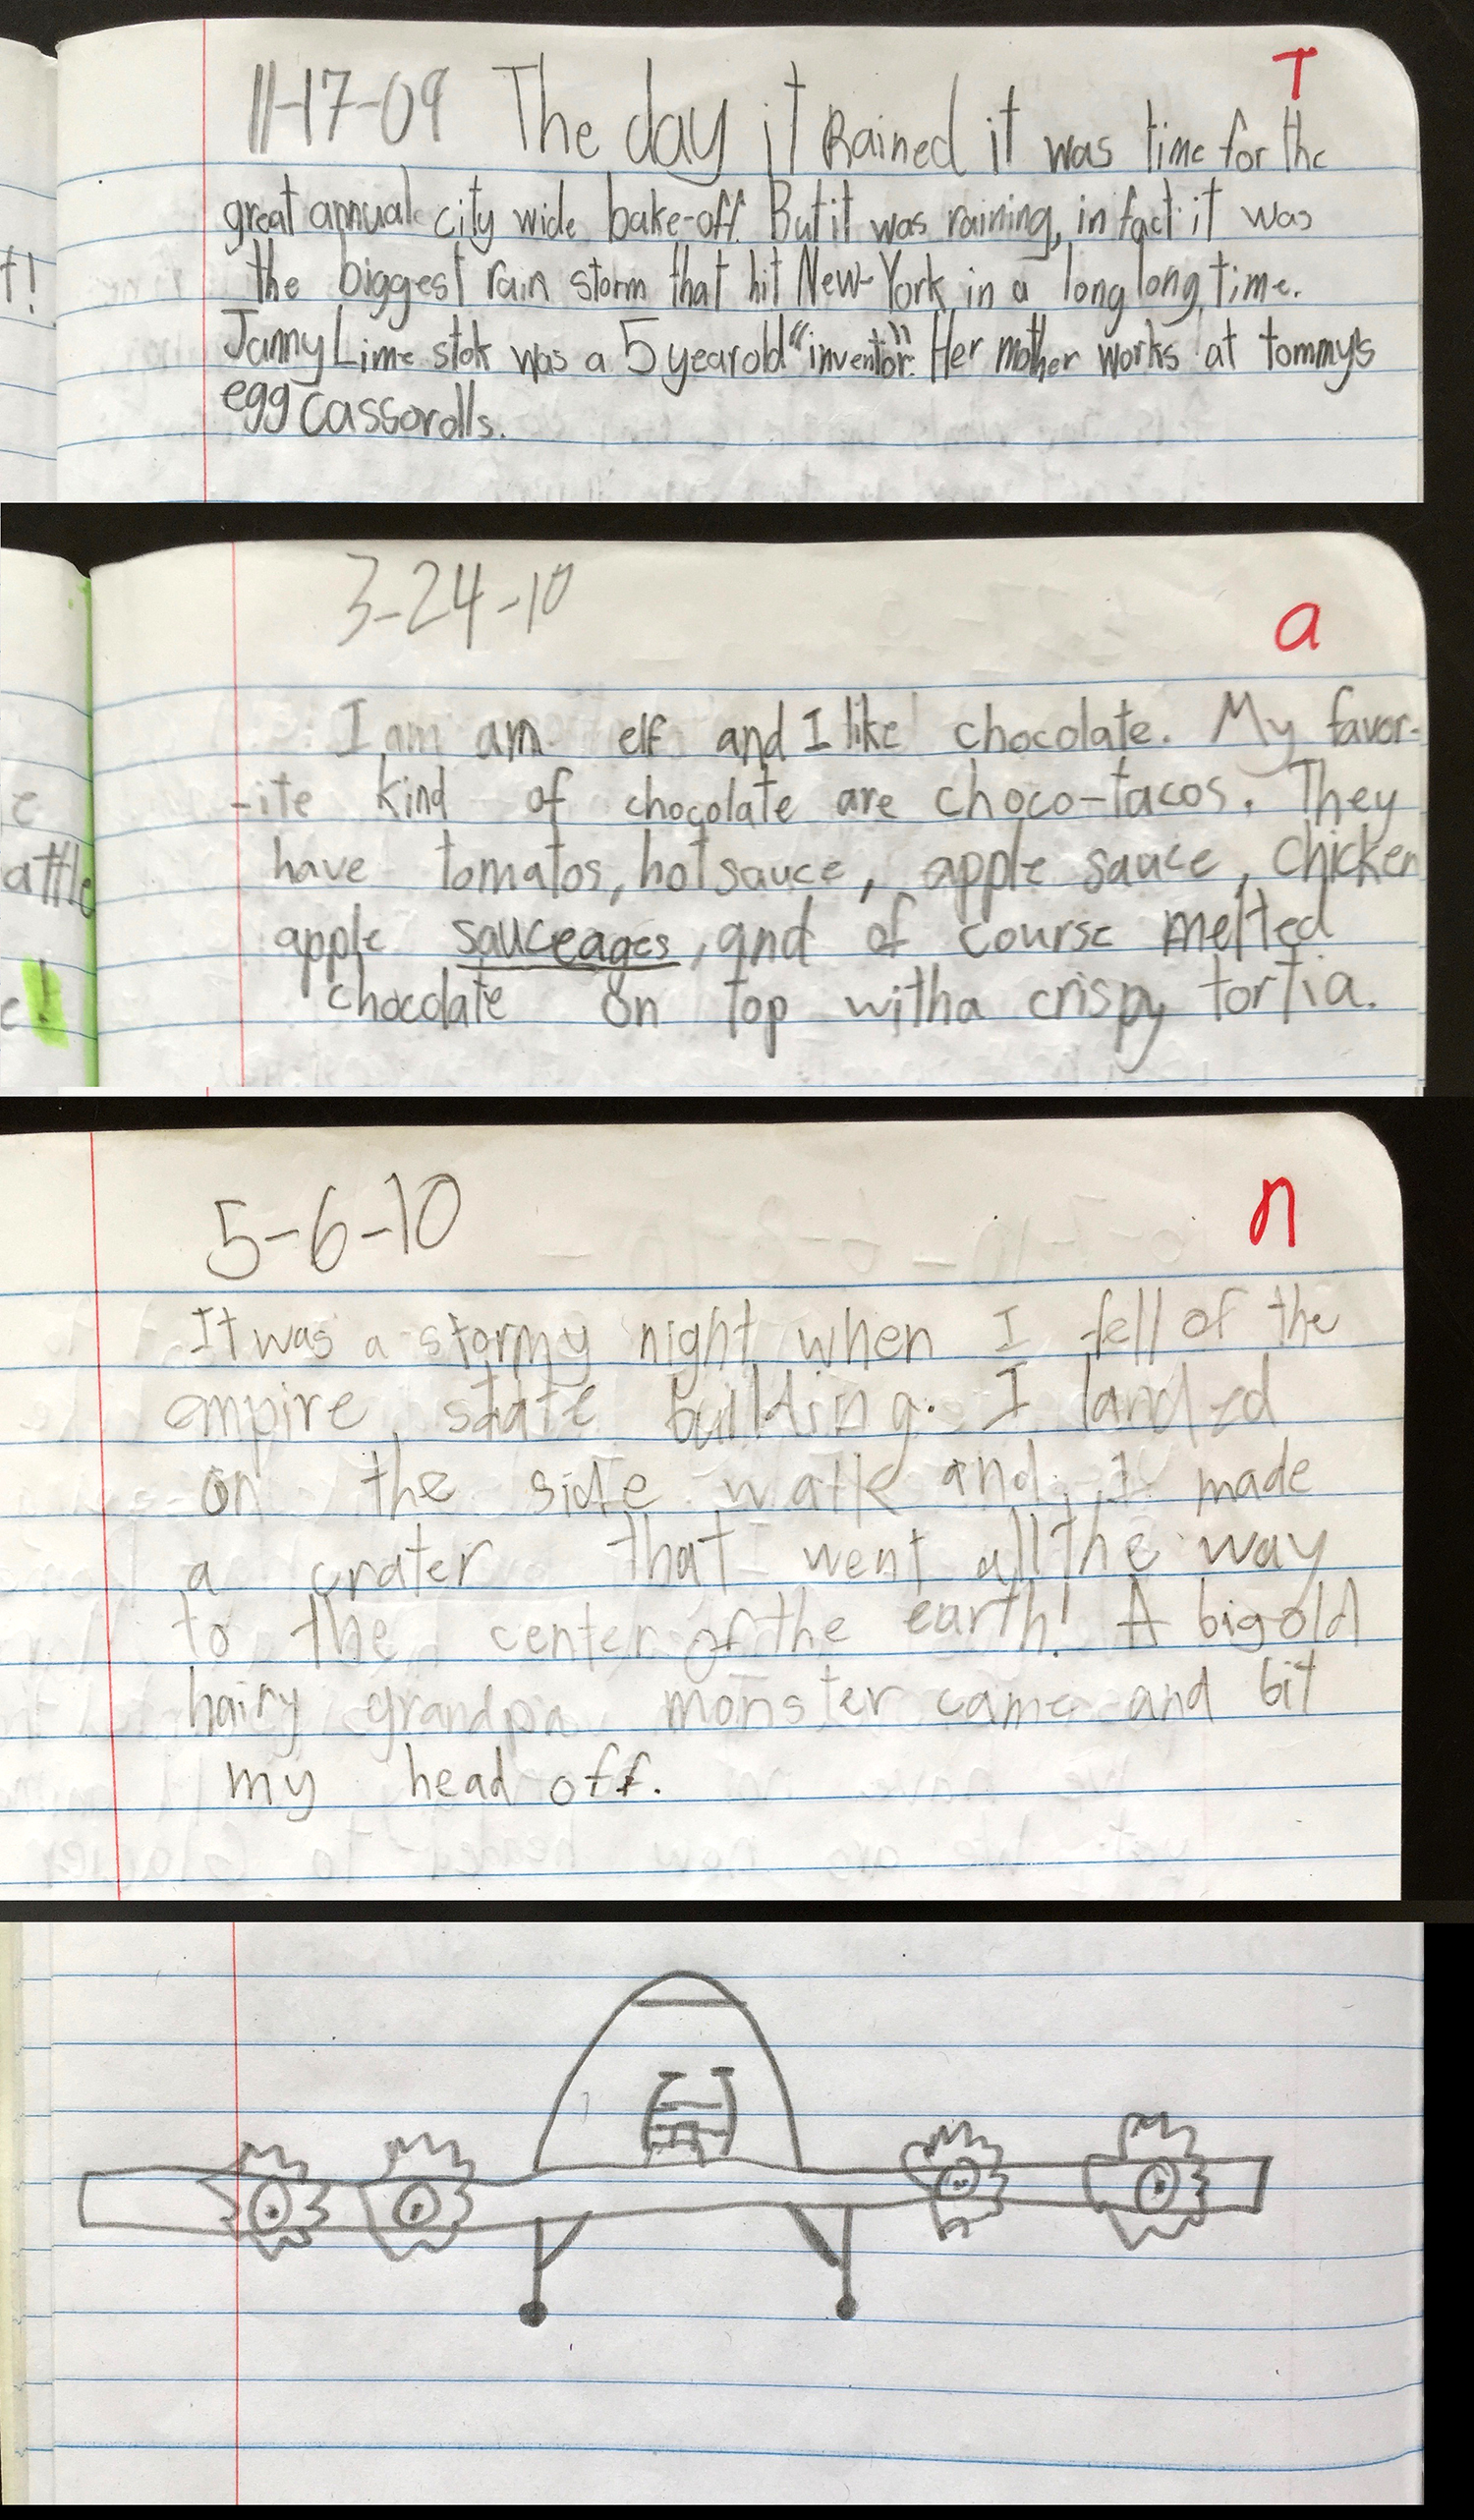 T
11-17-09 The day it Rained it was time for the
great annual city wide bake-off. But it was raining, in fact it was
t!
the biggest rain storm that hit New-York in a long long time.
Janny Lime stok was a 5 year old "inventor". Her mother works at tommy's
egg cassorolls.
3-24-10
a
I am am elf and I like chocolate. My favor-
e
-ite kind of chocolate are choco-tacos. They
attle
have tomatos, hot sauce, apple sauce, chicken
apple sauceages, and of course melted
e!
chocolate on top with a crispy tortia.
n
5-6-10
It was a stormy night when I fell of the
empire state building. I landed
on the side walk and I made
a crater that went all the way
to the center of the earth! A big old
hairy grandpa monster came and bit
my head off.